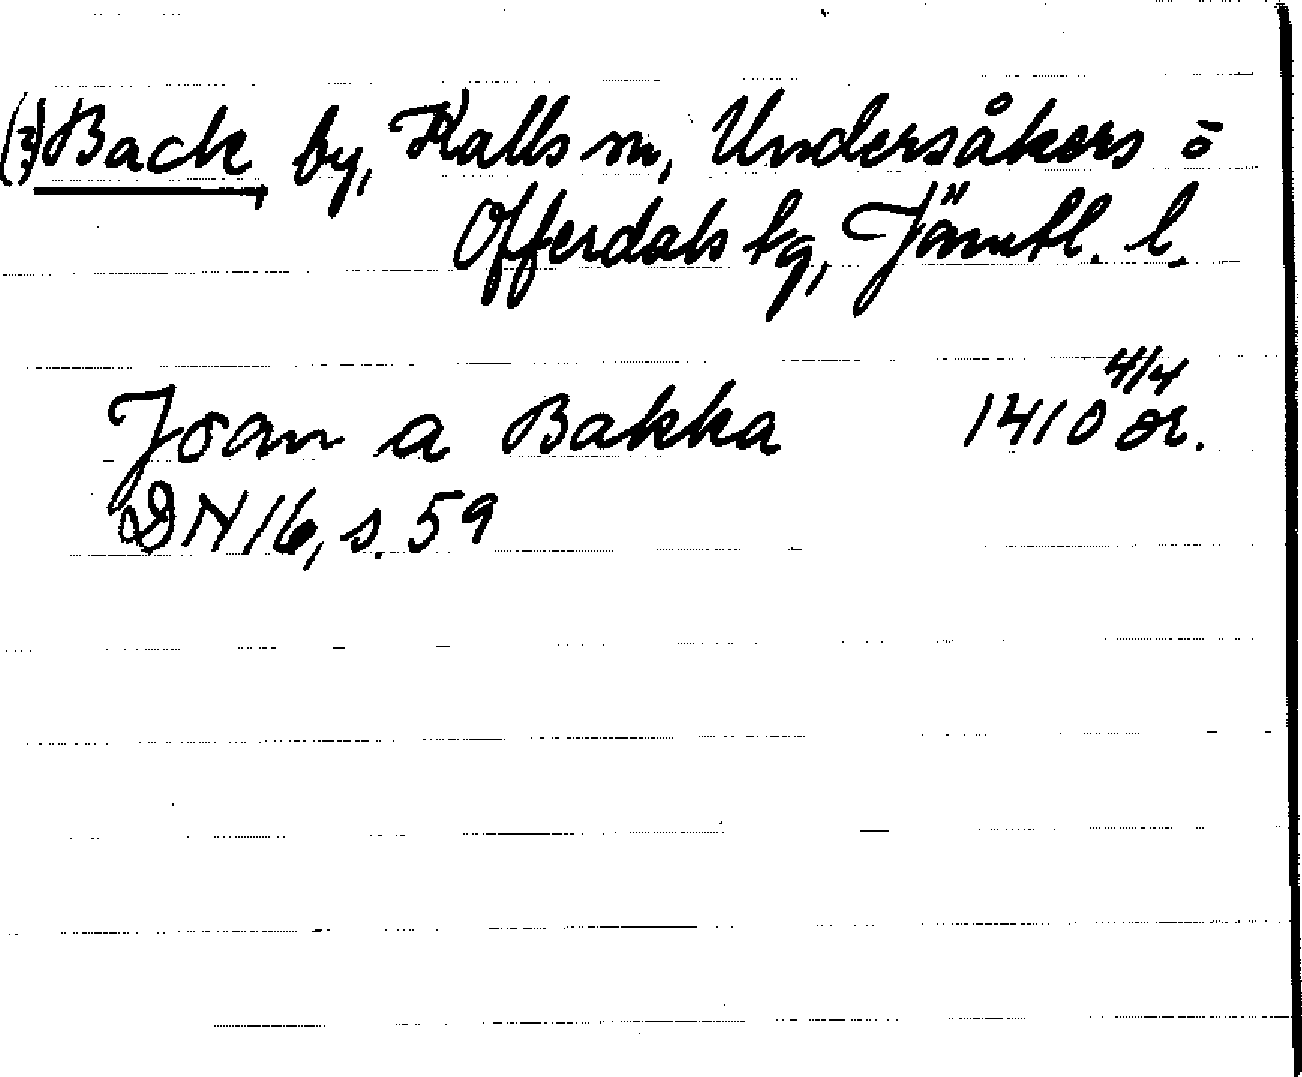 (?) Back by, Kalls sn, Undersåkers o
Offerdals tg, Jämtl. l.
Joan a Bakka 1410 4/4 or.
DN 16, s. 59